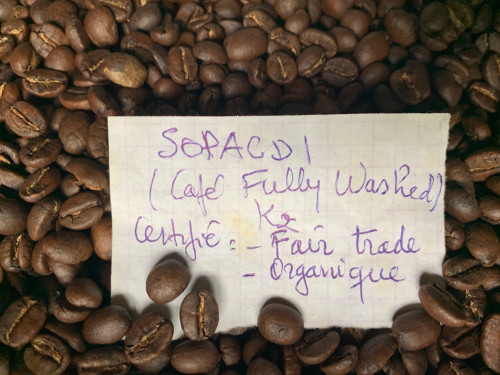 SOPACDI
(Café Fully Washed)
K2
Certifié : - Fair trade
- Organique